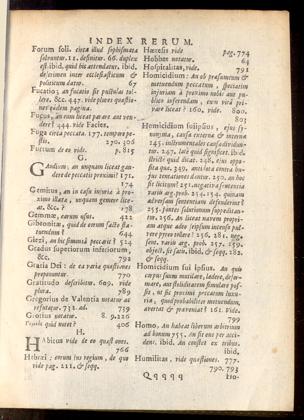 INDEX RERUM.
Forum soli. circa illud sophismata
solvuntur. 11. definitur. 66. duplex
est. ibid. quid his attendatur. ibid.
discrimen inter ecclesiasticum &
politicum 67
Fucatio, an fucatis sit postulas tol-
lere, &c. 447. vide plures quæstio-
nes eadem pagina.
Fucus, an eum liceat parare aut ven-
dere? 444. vide Facies.
Fuga circa peccata. 177. tempore pe-
stis. 270. 406
Furtum de eo vide. p. 815
G.
Gaudium, an unquam liceat gau-
dere de peccatis proximi? 171.
174
Gemitus, an in casu injuria à pro-
ximo illata, unquam gemere lice-
at, &c. ? 178
Gemmæ, earum usus. 422
Gibeonitæ, quid de eorum facto sta-
tuendum? 644
Giezi, an bis simoniâ peccavit? 524
Gradus superiorum inferiorum,
&c. 792
Gratia Dei: de ea variæ quæstiones
proponuntur. 770
Gratitudo describitur. 609. vide
plura. 789
Gregorius de Valentia notatur ac
refutatur. 732. ad. 739
Grotius notatur. 8. 9. 226
406
H.
Habicus vide de eo quæstiones.
766
Hebræi: eorum jus regium, de quo
vide pag. 211, & seqq.
Hæresis vide pag. 774
Hobbes notatur. 64
Hospitalitas, vide. 791
Homicidium: An ob præsumtum &
metuendum peccatum, spectatum
injuriam à proximo nobis aut pu-
blico inferendam, eum vitâ pri-
vare liceat? 160. vide. 800.
803
Homicidium sui ipsius, ejus sy-
nonyma, causa externa & interna
245. instrumentales causa dividun-
tur. 247. late quid significet. ibid.
stricte quid dicat. 248, ejus oppo-
sita quæ. 249. antithea contra hu-
jus tentationes dantur. 250. an hoc
sit licitum? 251. negativa sententia
variis arg. prob. 254-254. quinam
adversam sententiam defenderint?
255. juntos solidiorum suppeditan-
tur. 256. An liceat navem propri-
am atque adeo seipsum incensis pul-
vere pyreo tollere? 256, 281. neg.
sent. variis arg. prob. 257. 259.
object. sit satis. ibid. & seqq. 282.
& seqq.
Homicidium sui ipsius. An quis
corpus suum mutilare, ladere, defor-
mare, aut solidatarium simulare pos-
sit, ne sit proximi peccatum luxu-
ria, quod probabiliter metuendum,
avertat & præveniat? 161. Vide.
799
Homo, An habeat liberum arbitrium
ad bonum 755. An sit ens per acci-
dens. ibid. An constet ex tribus.
ibid.
Humilitas, vide quæstiones. 777.
790. 793
Qqqqq Ho-